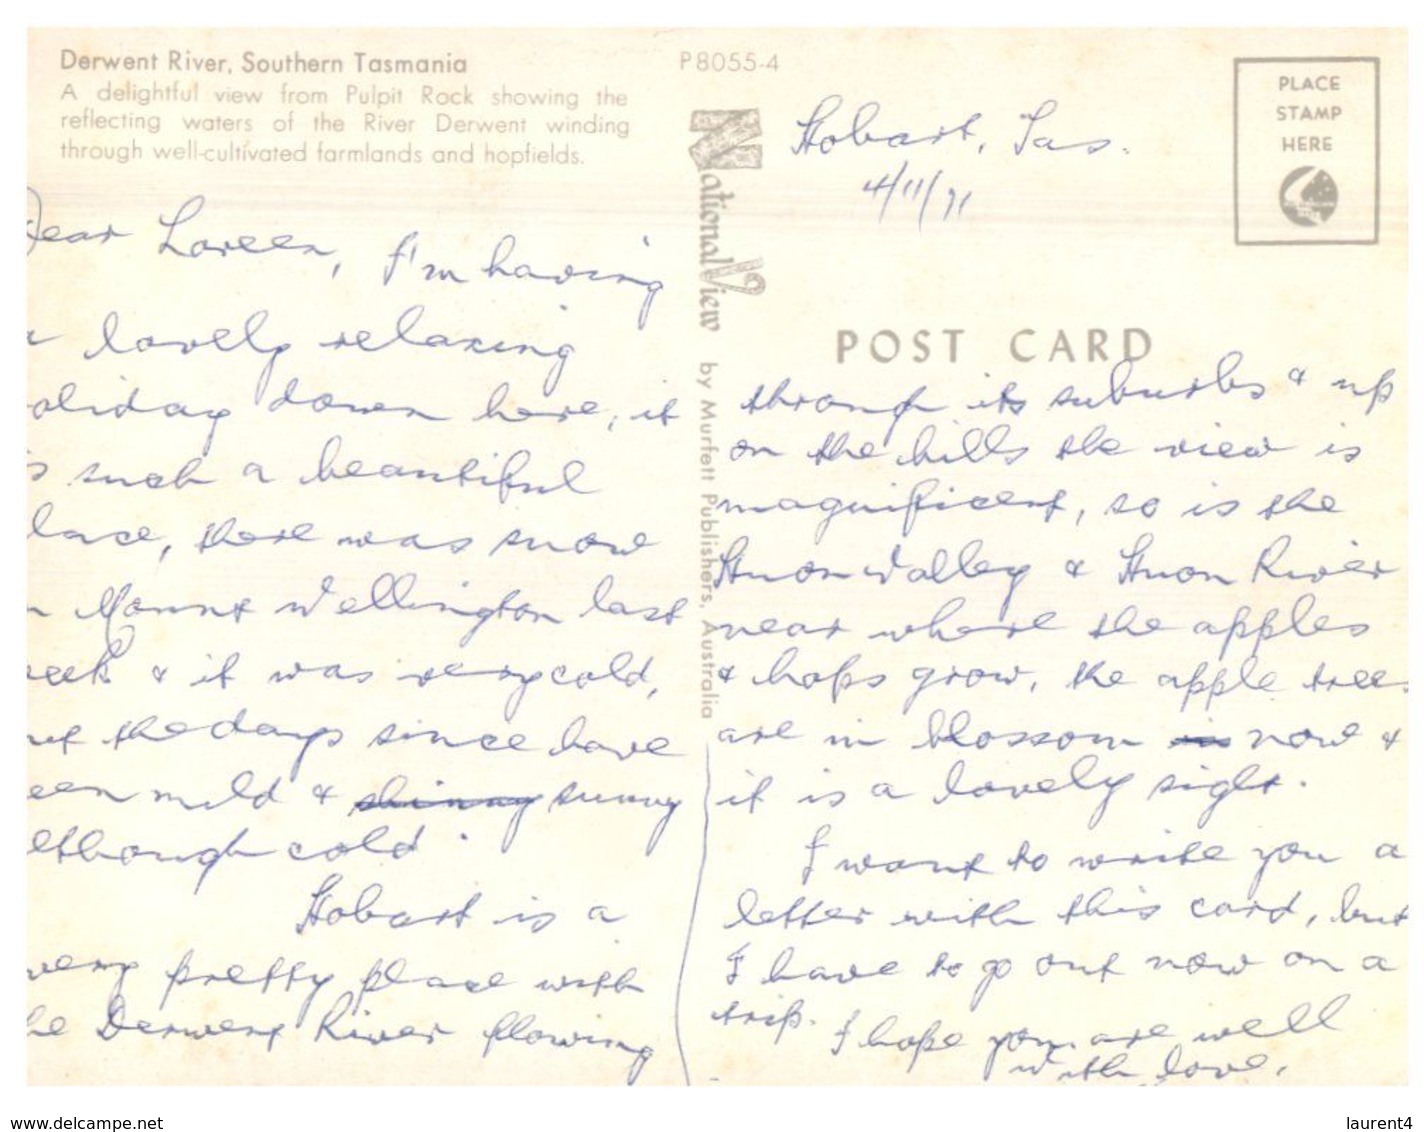 Derwent River, Southern Tasmania
A delightful view from Pulpit Rock showing the
reflecting waters of the River Derwent winding
through well-cultivated farmlands and hopfields.
P8055-4
National View by Murfett Publishers, Australia
PLACE
STAMP
HERE
POST CARD
Hobart, Tas.
4/11/71
Dear Loreen, I'm having
a lovely relaxing
oliday down here, it
s such a beautiful
lace, there was snow
n Mount Wellington last
eek & it was very cold,
ut the days since have
een mild & shinny sunny
lthough cold.
Hobart is a
very pretty place with
he Derwent River flowing
through its suburbs & up
on the hills the view is
magnificent, so is the
Huon Valley & Huon River
near where the apples
& hops grow, the apple trees
are in blossom now &
it is a lovely sight.
I want to write you a
letter with this card, but
I have to go out now on a
trip. I hope you are well
with love.
www.delcampe.net
laurent4